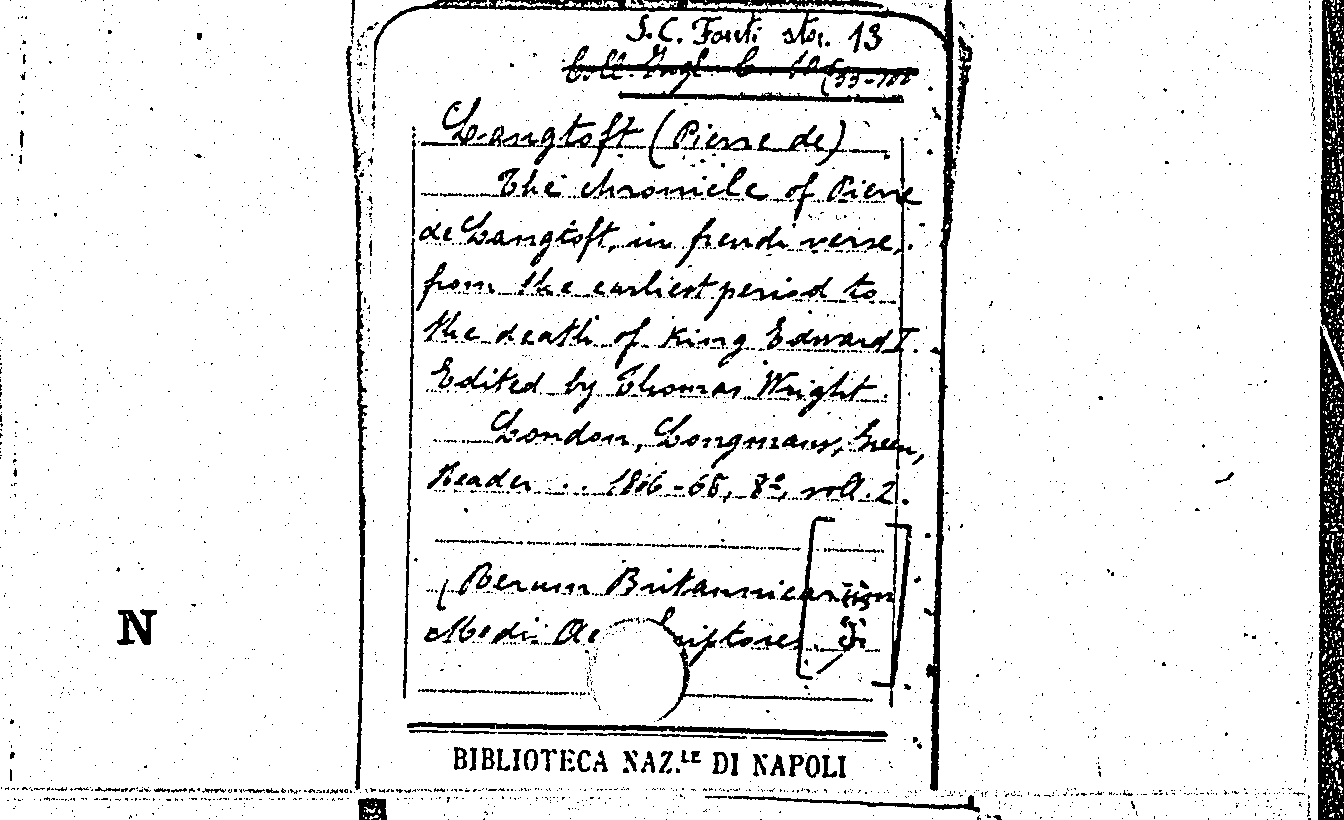 S.C. Fonti sto. 13
Coll. Ingl. C. 10 (99-100
Langtoft (Pierre de)
The chronicle of Pierre
de Langtoft, in french verse,
from the earliest period to
the death of King Edward I.
Edited by Thomas Wright.
London, Longmans, Green,
Reader .. 1866-68, 8º, voll. 2.
(Rerum Britannicarum
Medi. Ae criptores
N
BIBLIOTECA NAZ.LE DI NAPOLI